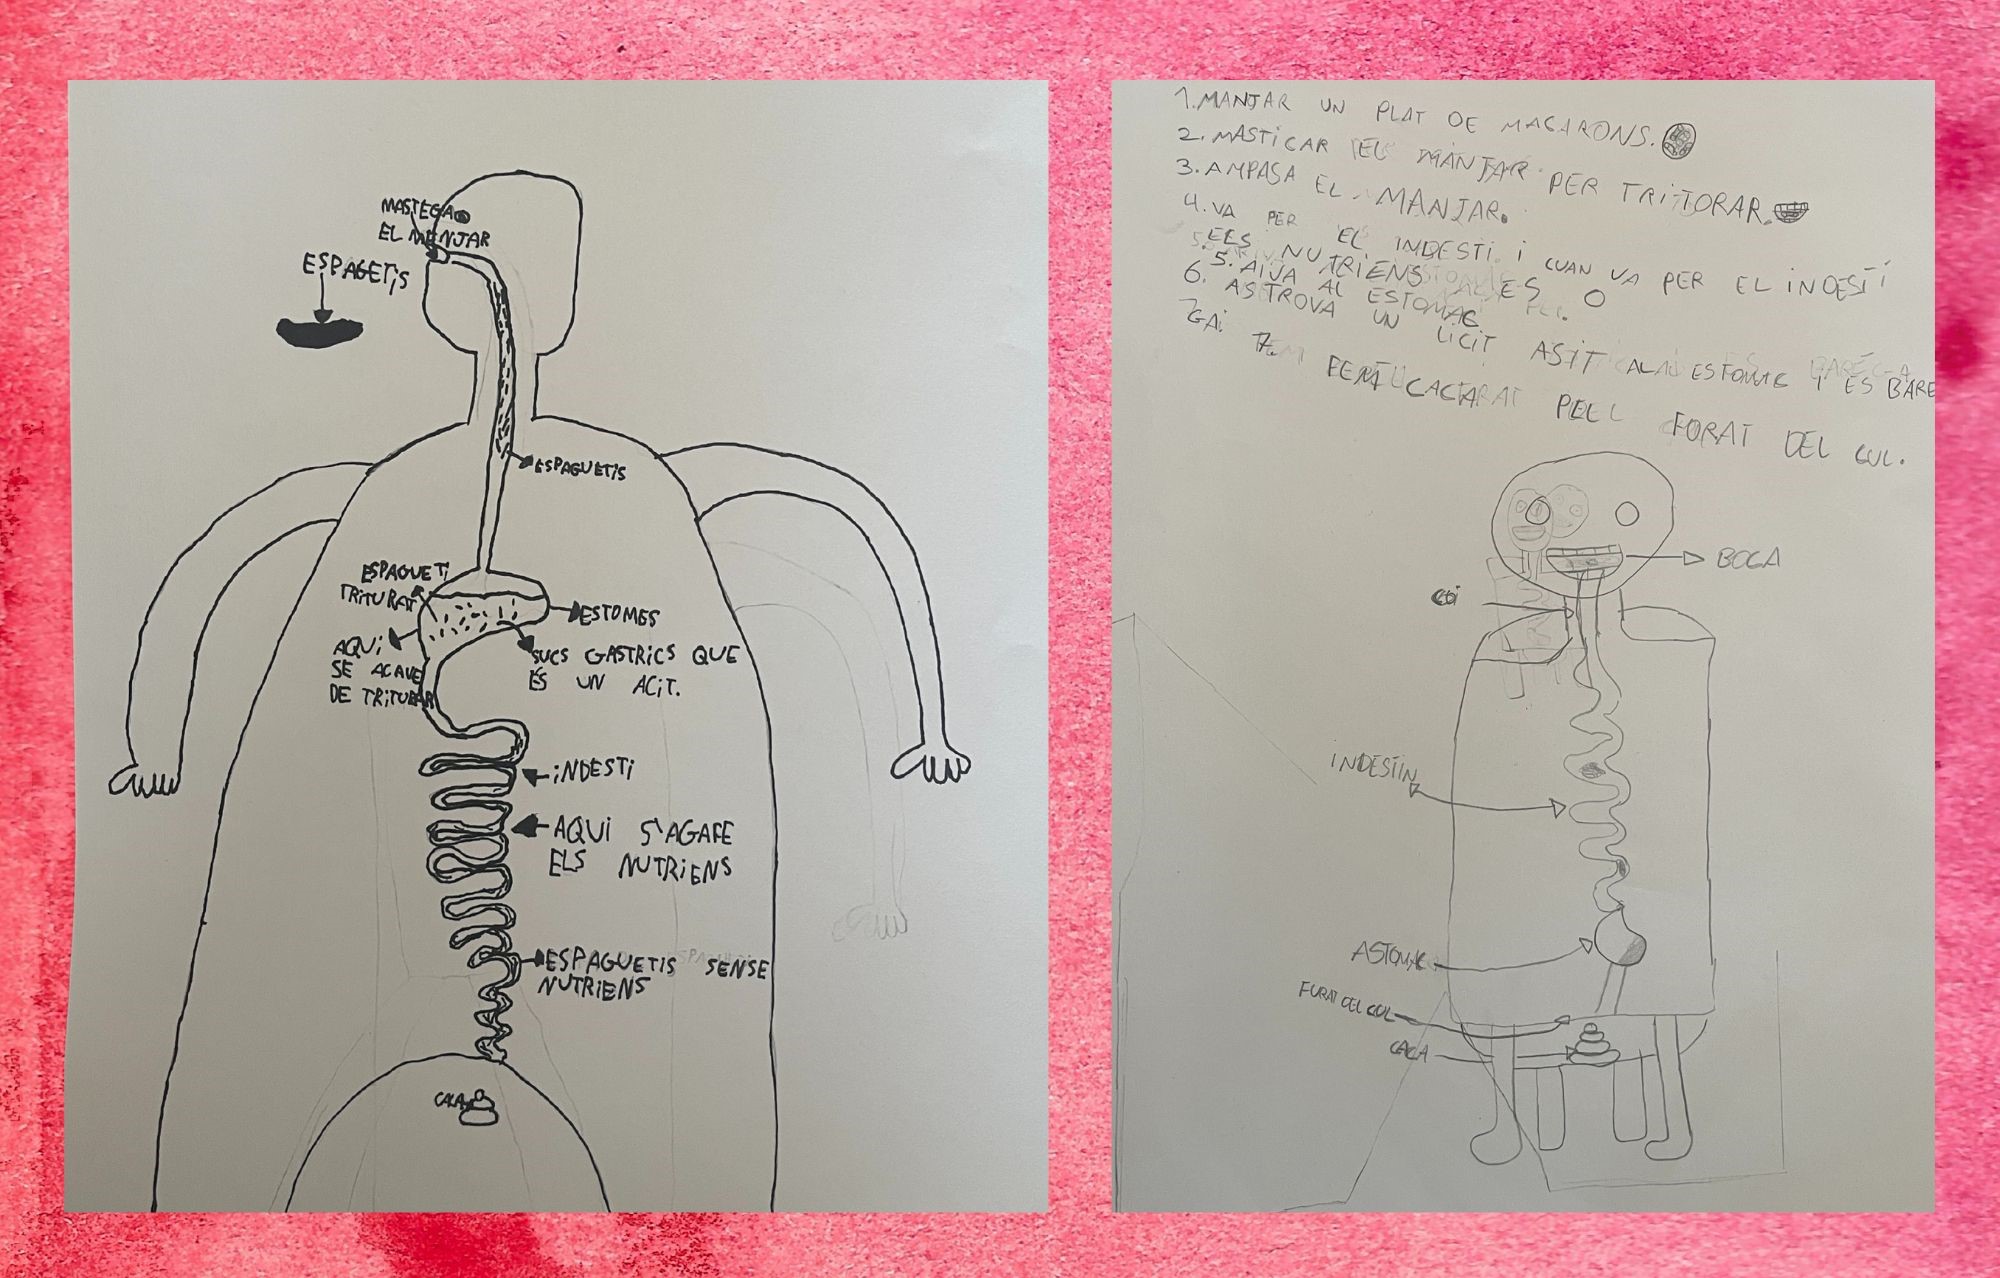 MASTEGA
EL MENJAR
ESPAGETIS
ESPAGUETIS
ESPAGUETI
TRITURAT
ESTOMES
AQUI
SE ACAVE
DE TRITURAR
SUCS GASTRICS QUE
ÉS UN ACIT.
INDESTI
AQUI S'AGAFE
ELS NUTRIENS
ESPAGUETIS SENSE
NUTRIENS
CACA
1. MANJAR UN PLAT DE MACARONS.
2. MASTICAR EL MANJAR PER TRITORAR.
3. AMPASA EL MANJAR.
4. VA PER EL INDESTI i CUAN VA PER EL INDESTI
ELS NUTRIENS ES
5. AIJA AL ESTOMAC
6. AS TROVA UN LICIT ASIT ALAL ESTOMAC I ES BARE
7. FEM CACA PEL FORAT DEL CUL.
BOCA
COI
INDESTIN
ASTOMAC
FURAT DEL CUL
CACA